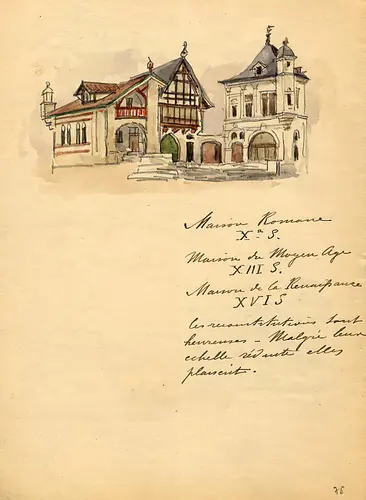 Maison Romane
Xe S.
Maison du Moyen Age
XIII S.
Maison de la Renaissance
XVI S
Les reconstitutions sont
heureuses - Malgré leur
echelle réduite elles
plaisent.
75